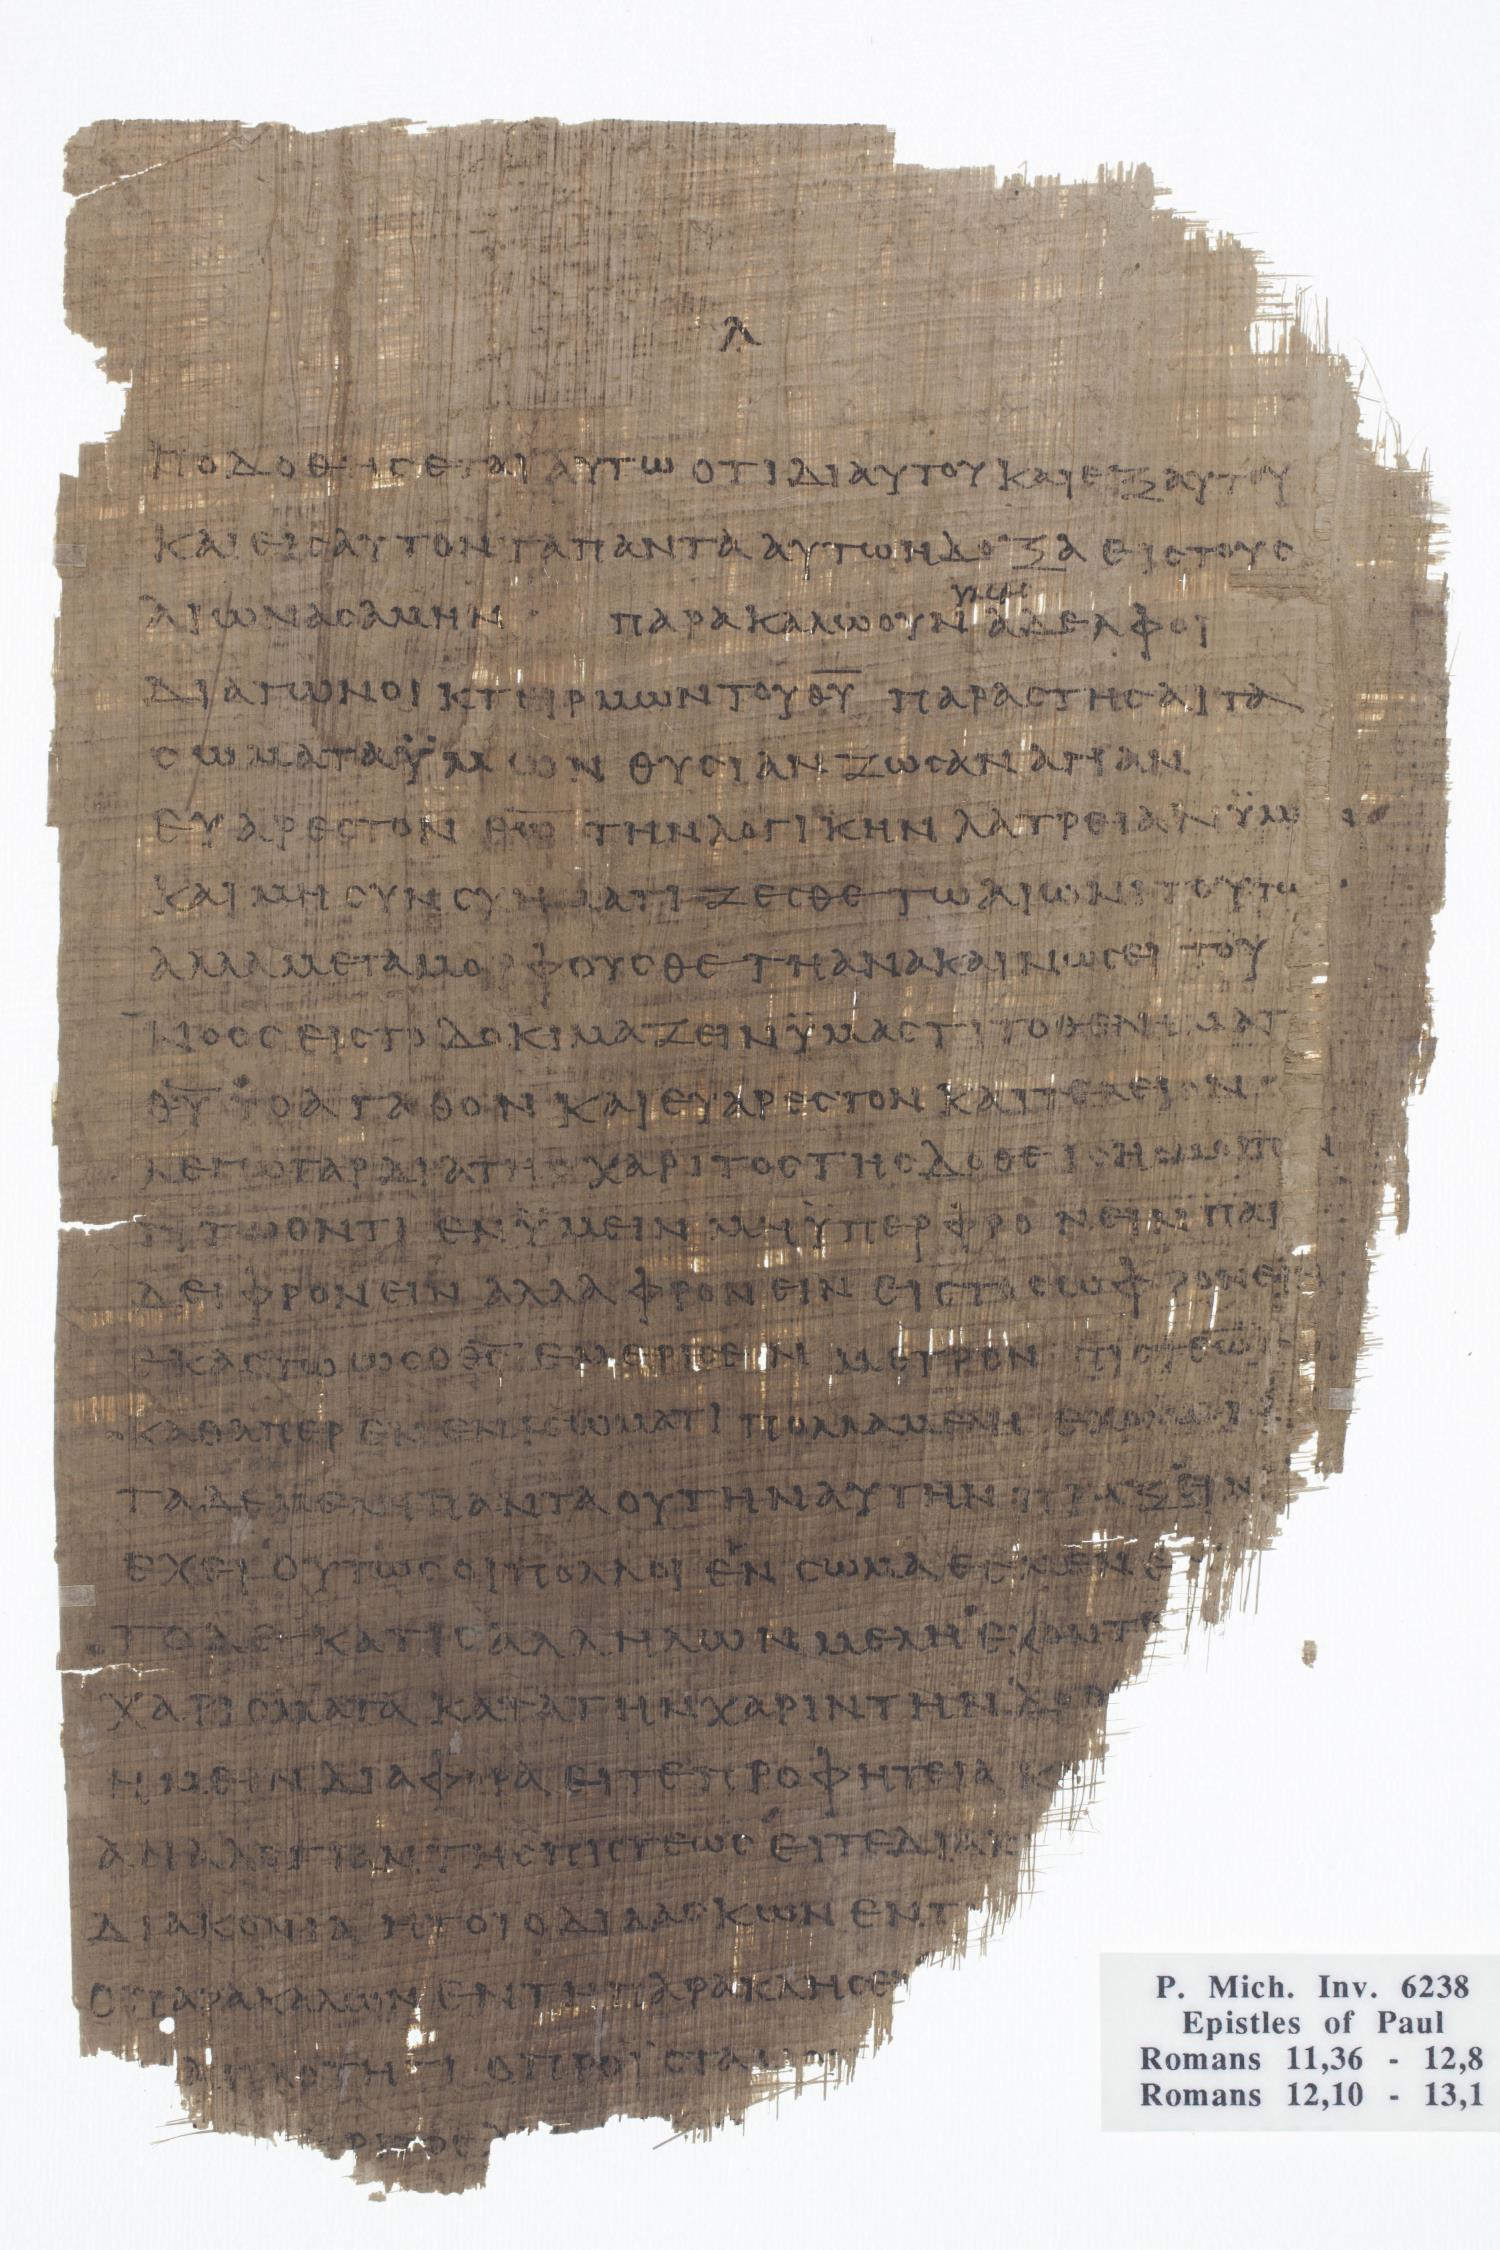 λ
ποδοθησεται αυτω οτι δι αυτου και εξ αυτου
και εις αυτον τα παντα αυτω η δοξα εις τους
αιωνας αμην παρακαλω ουν αδελφοι
υμας
δια των οικτειρμων του θυ παραστησαι τα
σωματα ϋμων θυσιαν ζωσαν αγιαν
ευαρεστον θω την λογικην λατρειαν ϋμω
και μη συνσχηματιζεσθε τω αιωνι τουτω
αλλα μεταμορφουσθε τη ανακαινωσει του
νοος εις το δοκιμαζειν ϋμας τι το θελημα τ
θυ το αγαθον και ευαρεστον και τελειον
λεγω γαρ δια της χαριτος της δοθεισης μοι π
τω οντι εν ϋμειν μη ϋπερφρονειν παρ
δει φρονειν αλλα φρονειν εις το σωφρονειν
εκαστω ως ο θς εμερισεν μετρον πιστεως
καθαπερ εν ενι σωματι πολλα μελη εχομεν
τα δε μελη παντα ου την αυτην πραξιν
εχει ουτως οι πολλοι εν σωμα εσμεν ε
το δε κατ ις αλληλων μελη εχοντε
χαρισματα κατα την χαριν την δοθ
ημειν διαφορα ειτε προφητεια κ
αναλογιαν της πιστεως ειτε διακ
διακονια ητοι ο διδασκων εν τ
ο παρακαλων εν τη παρακλησε
απλοτητι ο προϊστα
P. Mich. Inv. 6238
Epistles of Paul
Romans 11,36 - 12,8
Romans 12,10 - 13,1